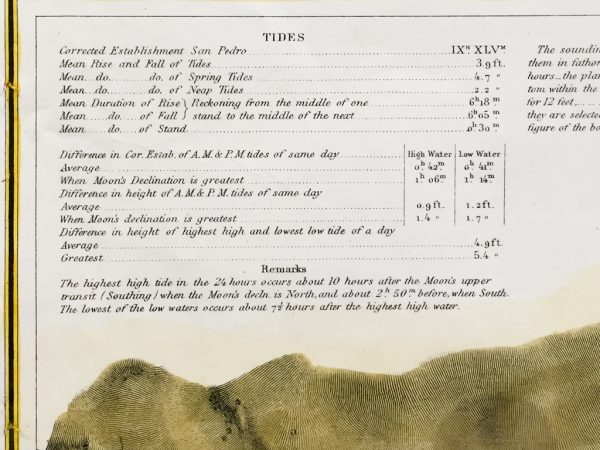 TIDES
Corrected Establishment San Pedro IXH XLVM
Mean Rise and Fall of Tides 3.9 ft.
Mean do. do. of Spring Tides 4.7 "
Mean do. do. of Neap Tides 2.2 "
Mean Duration of Rise } Reckoning from the middle of one 6h 18m
Mean do. of Fall } stand to the middle of the next 6h 05m
Mean do. of Stand 0h 30m
Difference in Cor. Estab. of A.M. & P.M. tides of same day High Water Low Water
Average 0h 42m 0h 41m
When Moon's Declination is greatest 1h 06m 1h 14m
Difference in height of A.M. & P.M. tides of same day
Average 0.9 ft. 1.2 ft.
When Moon's declination is greatest 1.4 " 1.7 "
Difference in height of highest high and lowest low tide of a day
Average 4.9 ft.
Greatest 5.4 "
Remarks
The highest high tide in the 24 hours occurs about 10 hours after the Moon's upper
transit (Southing) when the Moon's decln. is North, and about 2h 50m before, when South.
The lowest of the low waters occurs about 7½ hours after the highest high water.
The soundin
them in fathom
hours_ the plan
tom within the
for 12 feet,
they are selected
figure of the bo